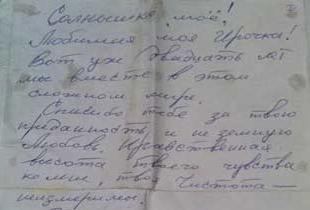 Солнышко моё!
Любимая моя Ирочка!
Вот уж двадцать лет
мы вместе в этом
сложном мире.
Спасибо тебе за твою
преданность, и не земную
Любовь. Нравственная
высота твоего чувства
ко мне, твоя чистота —
неизмеримы.